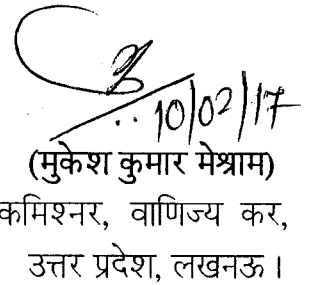 10/02/17
(मुकेश कुमार मेश्राम)
कमिश्नर, वाणिज्य कर,
उत्तर प्रदेश, लखनऊ।